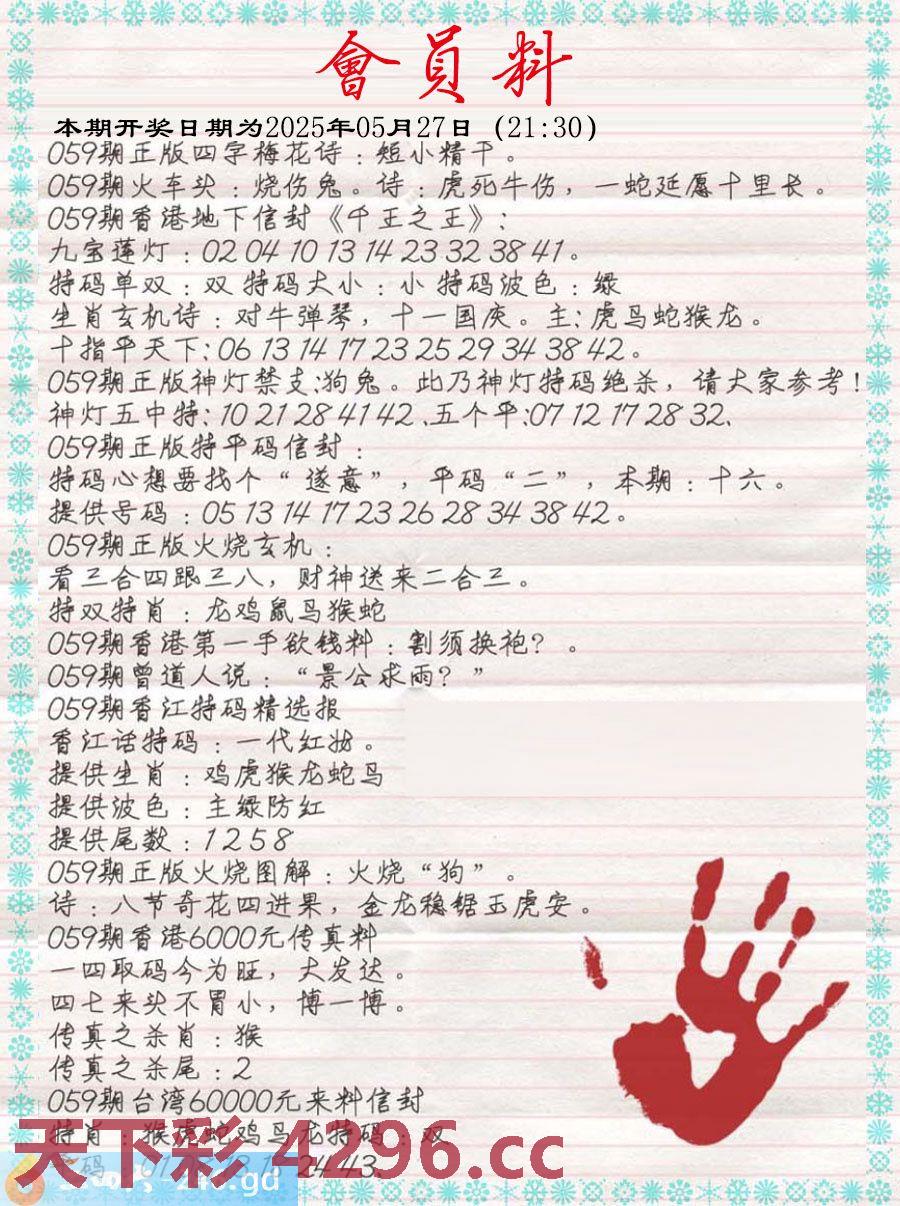 會員料
本期开奖日期为2025年05月27日（21:30）
059期正版四字梅花诗：短小精干。
059期火车头：烧伤兔。诗：虎死牛伤，一蛇延愿十里长。
059期香港地下信封《千王之王》：
九宝莲灯：02 04 10 13 14 23 32 38 41。
特码单双：双 特码大小：小 特码波色：绿
生肖玄机诗：对牛弹琴，十一国庆。主：虎马蛇猴龙。
十指平天下：06 13 14 17 23 25 29 34 38 42。
059期正版神灯禁支:狗兔。此乃神灯特码绝杀，请大家参考！
神灯五中特：10 21 28 41 42 .五个平:07 12 17 28 32.
059期正版特平码信封：
特码心想要找个“遂意”，平码“二”，本期：十六。
提供号码：05 13 14 17 23 26 28 34 38 42。
059期正版火烧玄机：
看三合四跟三八，财神送来二合三。
特双特肖：龙鸡鼠马猴蛇
059期香港第一手欲钱料：割须换袍？。
059期曾道人说：“景公求雨？”
059期香江特码精选报
香江话特码：一代红妆。
提供生肖：鸡虎猴龙蛇马
提供波色：主绿防红
提供尾数：1 2 5 8
059期正版火烧图解：火烧“狗”。
诗：八节奇花四进果，金龙稳锯玉虎安。
059期香港6000元传真料
一四取码今为旺，大发达。
四七来头不胃小，博一博。
传真之杀肖：猴
传真之杀尾：2
059期台湾60000元来料信封
特肖：猴虎蛇鸡马龙特码：双
天下彩 4296.cc
24 43.